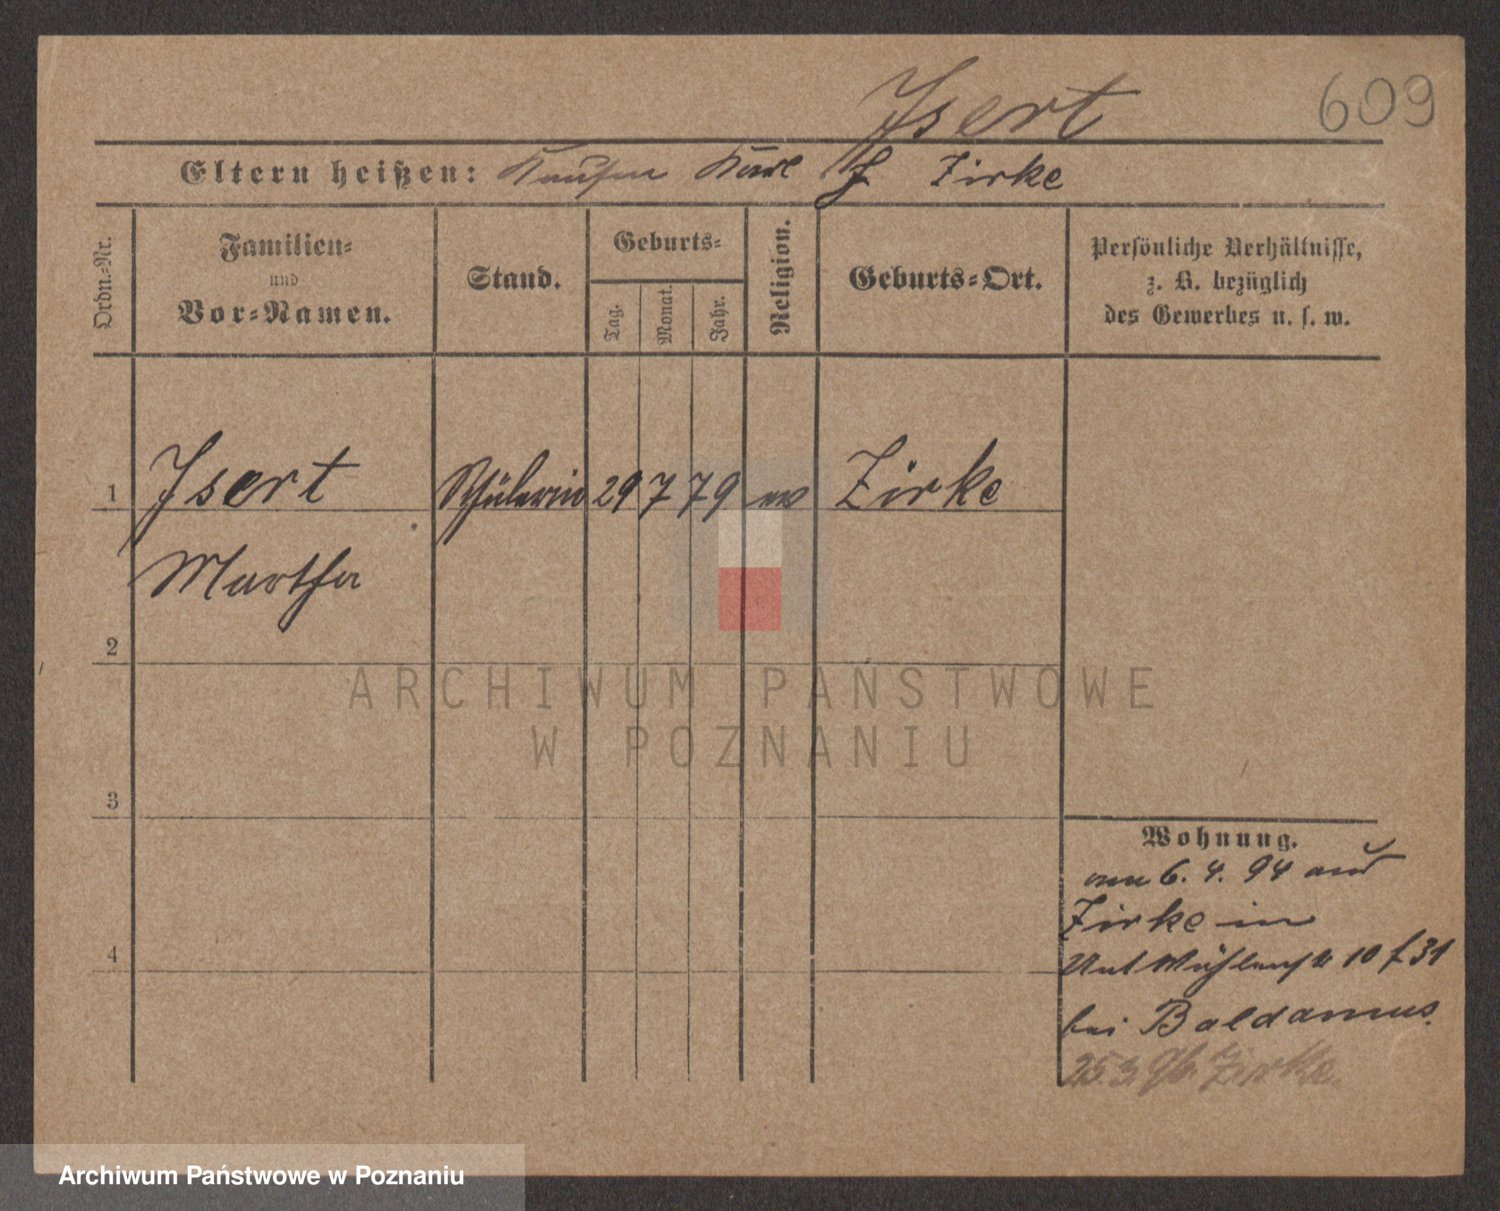 Isert
609
Eltern heißen: Kaufm Karl J Zirke
Ordn.-Nr.
Familien-
und
Vor-Namen.
Stand.
Geburts-
Tag.
Monat.
Jahr.
Religion.
Geburts-Ort.
Persönliche Verhältnisse,
z. B. bezüglich
des Gewerbes u. s. w.
1 Isert Schülerin 29 7 79 ev Zirke
Martha
2
3
4
Wohnung.
am 6. 4. 94 aus
Zirke in
Unt Mühlenstr 10 f 31
bei Baldamus.
25.3. 96. Zirke.
ARCHIWUM PAŃSTWOWE
W POZNANIU
Archiwum Państwowe w Poznaniu